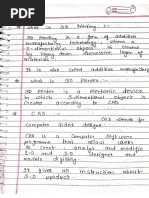 What is 3D Printing :-
3D Printing is a form of additive
manufacturing technology where a
three dimensional object is created
by laying down successive layer of
material.
It is also called additive manufacturing
what is 3D Printer :-
3D Printer is a electronic device
in which 3-dimensional object is
created according to CAD.
CAD :-
CAD stands for
Computer aided design.
CAD is a Computer software
programme that allows users
to create analyse and modify
2-D or 3-D designs and
models digitally.
It gives all instruction about
3-D product